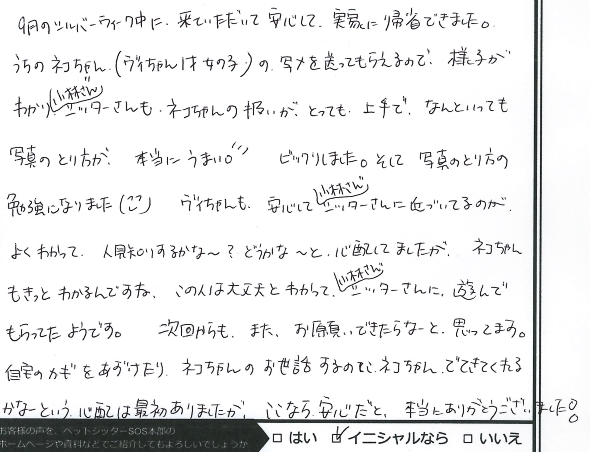 9月のシルバーウィーク中に、来ていただいて安心して、実家に帰省できました。
うちのネコちゃん、(ヴィちゃんは女の子)の写メを送ってもらえるので、様子が
わかり小林さんシッターさんも、ネコちゃんの扱いが、とっても上手で、なんといっても
写真のとり方が、本当にうまい。ビックリしました。そして写真のとり方の
勉強になりました(ニコ) ヴィちゃんも、安心して小林さんシッターさんに近づいてるのが、
よくわかって、人見知りするかな〜?どうかな〜と、心配してましたが、ネコちゃん
もきっとわかるんですね、この人は大丈夫とわかって、小林さんシッターさんに、遊んで
もらってたようです。 次回からも、また、お願いできたらなーと、思ってます。
自宅のカギをあずけたり、ネコちゃんのお世話するのに、ネコちゃん、でてきてくれる
かなーという心配は最初ありましたが、ここなら、安心だと、本当にありがとうございました。
お客様の声を、ペットシッターSOS本部の
ホームページや資料などでご紹介してもよろしいでしょうか
□ はい ☑ イニシャルなら □ いいえ